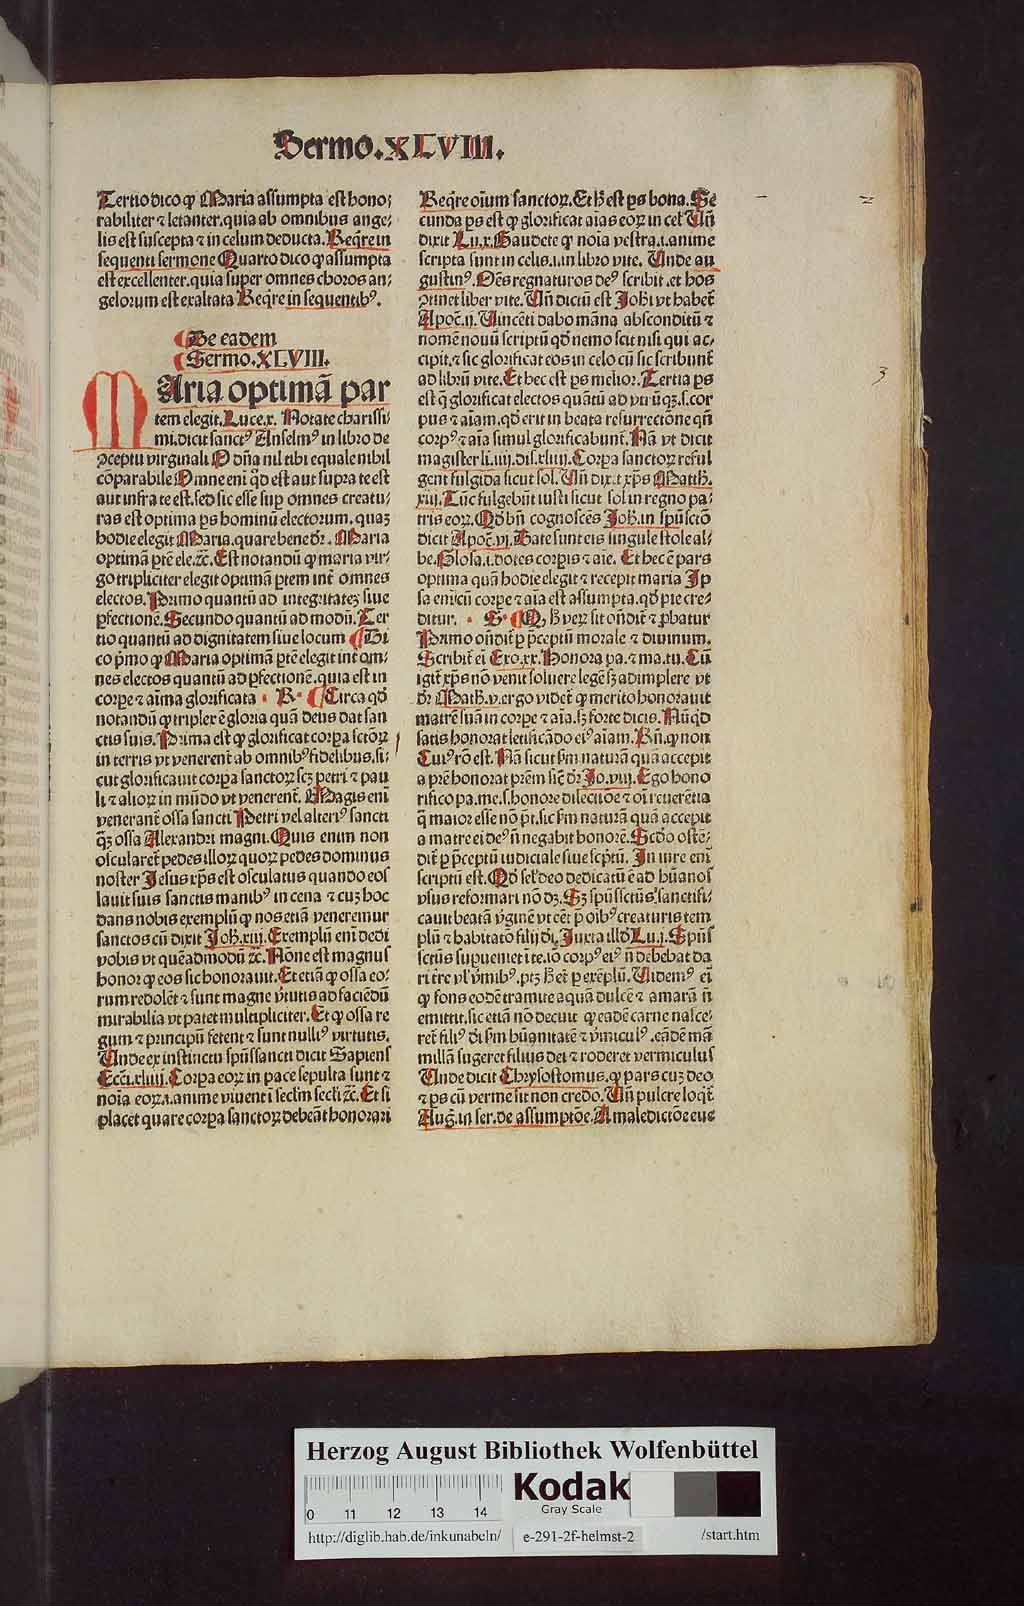 Sermo.XLVIII.
Tertio dico ꝙ Maria assumpta est hono⸗
rabiliter ⁊ letanter.quia ab omnibus ange⸗
lis est suscepta ⁊ in celum deducta.Reqͥre in
sequenti sermone Quarto dico ꝙ assumpta
est excellenter.quia super omnes choros an⸗
gelorum est exaltata Reqͥre in sequentibꝰ.
De eadem
Sermo.XLVIII.
MAria optimã par
tem elegit.Luce.x. Notate charissi⸗
mi.dicit sanctꝰ Anselmꝰ in libro de
ꝯceptu virginali O dñа nil tibi equale nibil
cõparabile Omne eni qͥd est aut supra te est
aut infra te est.sed sic esse suꝑ omnes creatu⸗
ras est optima ꝑs hominũ electorum.quaꝫ
hodie elegit Maria.quare bene dr̃. Maria
optimã ꝑtẽ ele.ꝛc̃.Est notandũ ꝙ maria vir⸗
go tripliciter elegit optimã ꝑtem int̃ omnes
electos.Primo quantũ ad integritateꝫ siue
ꝑfectionẽ.Secundo quantũ ad modũ.Ter
tio quantũ ad dignitatem siue locum ¶Di
co p̃mo ꝙ Maria optimã ꝑtẽ elegit int̃ om⸗
nes electos quantũ ad ꝑfectionẽ.quia est in
corꝑe ⁊ aĩma glorificata · R· ¶Circa qd̃
notandũ ꝙ triplex ẽ gloria quã deus dat san
ctis suis.Prima est ꝙ glorificat corpa sctõꝝ
in terris vt venerent̃ ab omnibꝰ fidelibus.si⸗
cut glorificauit corpa sanctoꝝ scꝫ petri ⁊ pau
li ⁊ alioꝝ in mũdo vt venerent̃. Magis eni
venerant̃ ossa sancti Petri vel alteriꝰ sancti
qͣꝫ ossa Alexandri magni.Quis enim non
oscularet̃ pedes illoꝝ quoꝝ pedes dominus
noster Jesus xp̃s est osculatus quando eos
lauit suis sanctis manibꝰ in cena ⁊ cuꝫ hoc
dans nobis exemplũ ꝙ nos etiã veneremur
sanctos cũ dixit Joh.xiij.Exemplũ eni dedi
vobis vt quẽadmodũ ꝛc̃.Nõne est magnus
honor ꝙ eos sic honorauit.Et etiã ꝙ ossa eo⸗
rum redolẽt ⁊ sunt magne ṽtutis ad faciẽdũ
mirabilia vt patet multipliciter.Et ꝙ ossa re
gum ⁊ principũ fetent ⁊ sunt nulliꝰ virtutis.
Unde ex instinctu spũssancti dicit Sapiens
Ecci.xliiij.Corpa eoꝝ in pace sepulta sunt ⁊
noĩa eoꝝ.i.anime viuent i secl̃m secli ꝛc̃.Et si
placet quare corpa sanctoꝝ debeãt honorari
Reqͥre oĩum sanctoꝝ.Et h̃ est ꝑs bona.Se
cunda ꝑs est ꝙ glorificat aĩas eoꝝ in cel̃ Uñ
dixit Lu.x.Gaudete ꝙ noĩa vestra.i.anime
scripta sunt in celis.i.in libro vite. Unde au
gustinꝰ.Oẽs regnaturos deꝰ scribit.et hos
ꝯtinet liber vite. Uñ dictũ est Johi vt habet̃
Apoc̃.ij.Uincẽti dabo mãna absconditũ ⁊
nomẽ nouũ scriptũ qd̃ nemo scit nisi qui ac⸗
cipit.⁊ sic glorificat eos in celo cũ sic scribunt̃
ad librũ vite.Et hec est ꝑs melior.Tertia ꝑs
est q̃ glorificat electos quãtũ ad vtrũqꝫ.s.cor
pus ⁊ aĩam.qd̃ erit in beata resurrectiõne qñ
corpꝰ ⁊ aĩa simul glorificabunt̃.Nã vt dicit
magister li.iiij.dis.xliiij.Corpa sanctoꝝ reful
gent fulgida sicut sol. Uñ dix.it xp̃s Matth̃.
xiij.Tũc fulgebũt iusti sicut sol in regno pa⸗
tris eoꝝ.Qd̃ bñ cognoscẽs Joh̃.in spũ sctõ
dicit Apoc̃.vj.Date sunt eis singule stole al⸗
be.Glosa.i.dotes corpis ⁊ aĩe. Et hec ẽ pars
optima quã hodie elegit ⁊ recepit maria Ip
sa eni cũ corꝑe ⁊ aĩa est assumpta.qd̃ pie cre⸗
ditur. · S· ¶Q, h̃ veꝝ sit oñdit̃ ⁊ ꝓbatur
Primo oñdit̃ ꝑ p̃ceptũ morale ⁊ diuinum.
Scribit̃ ei Exo.xx.Honora pa.⁊ ma.tu.Cũ
igit̃ xp̃s nõ venit soluere legẽ sꝫ adimplere vt
dr̃ Math̃.v.ergo videt̃ ꝙ merito honorauit
matrẽ suã in corꝑe ⁊ aĩa.sꝫ forte dicis.Nũqd̃
satis honorat letificãdo eiꝰ aĩam.Rñ.ꝙ non
Cuiꝰ rõ est.Nã sicut ẜm naturã quã accepit
a prẽ honorat prẽm sic̃ dr̃ Jo.viij.Ego hono
rifico pa.me.s.honore dilectiõe ⁊ oĩ reuerẽtia
q̃ maior esse nõ p̃t.sic ẜm naturã quã accepit
a matre ei deꝰ ñ negabit honorẽ.Scd̃o oste⸗
dit̃ ꝑ p̃ceptũ iudiciale siue scp̃tũ. In iure eni
scriptũ est.Qd̃ sel̃ deo dedicatũ ẽ ad hũanos
vsus reformari nõ dꝫ.Sꝫ spũssctũs sanctifi⸗
cauit beatã ỹginẽ vt eẽt p̃ oĩbꝰ creaturis tem
plũ ⁊ habitatõ filij dĩ.Juxta illd̃ Lu.j.Spũs
sctũs supueniet i te.iõ corpꝰ eiꝰ ñ debebat da
ri t̃re vl̃ ṽmibꝰ.ptꝫ h̃et̃ ꝑ exẽplũ. Uidemꝰ ei
ꝙ fons eodẽ tramite aquã dulcẽ ⁊ amarã ñ
emittit.sic etiã nõ decuit ꝙ eadẽ carne nasce⸗
ret̃ filiꝰ dĩ ẜm hũanitatẽ ⁊ ṽmiculꝰ.eãdẽ mã
millã sugeret filius dei ⁊ roderet vermiculus
Unde dicit Chrysostomus.ꝙ pars cuꝫ deo
⁊ ꝑs cũ verme sit non credo. Uñ pulcre loqͥt̃
Aug̃.in ser.de assumptõe.A maledictõe eue
3
Herzog August Bibliothek Wolfenbüttel
0 11 12 13 14
Kodak
Gray Scale
http://diglib.hab.de/inkunabeln/ e-291-2f-helmst-2 /start.htm